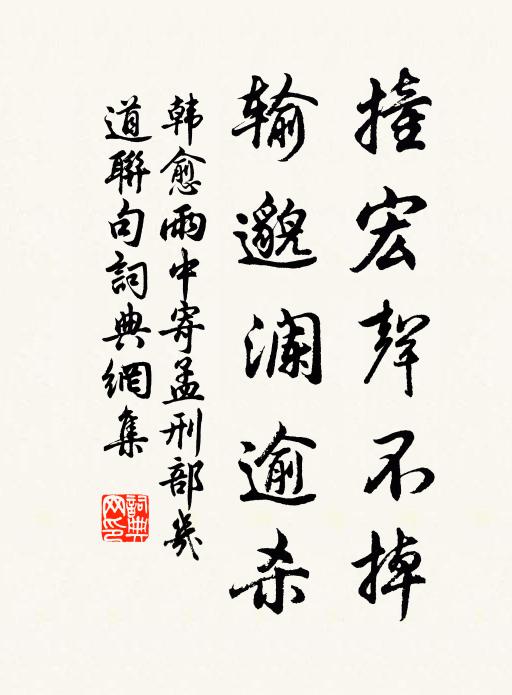 撞宏聲不掉
输邈澜逾杀
韩愈雨中寄孟刑部幾
道聯句詞典網集
詞典
网印